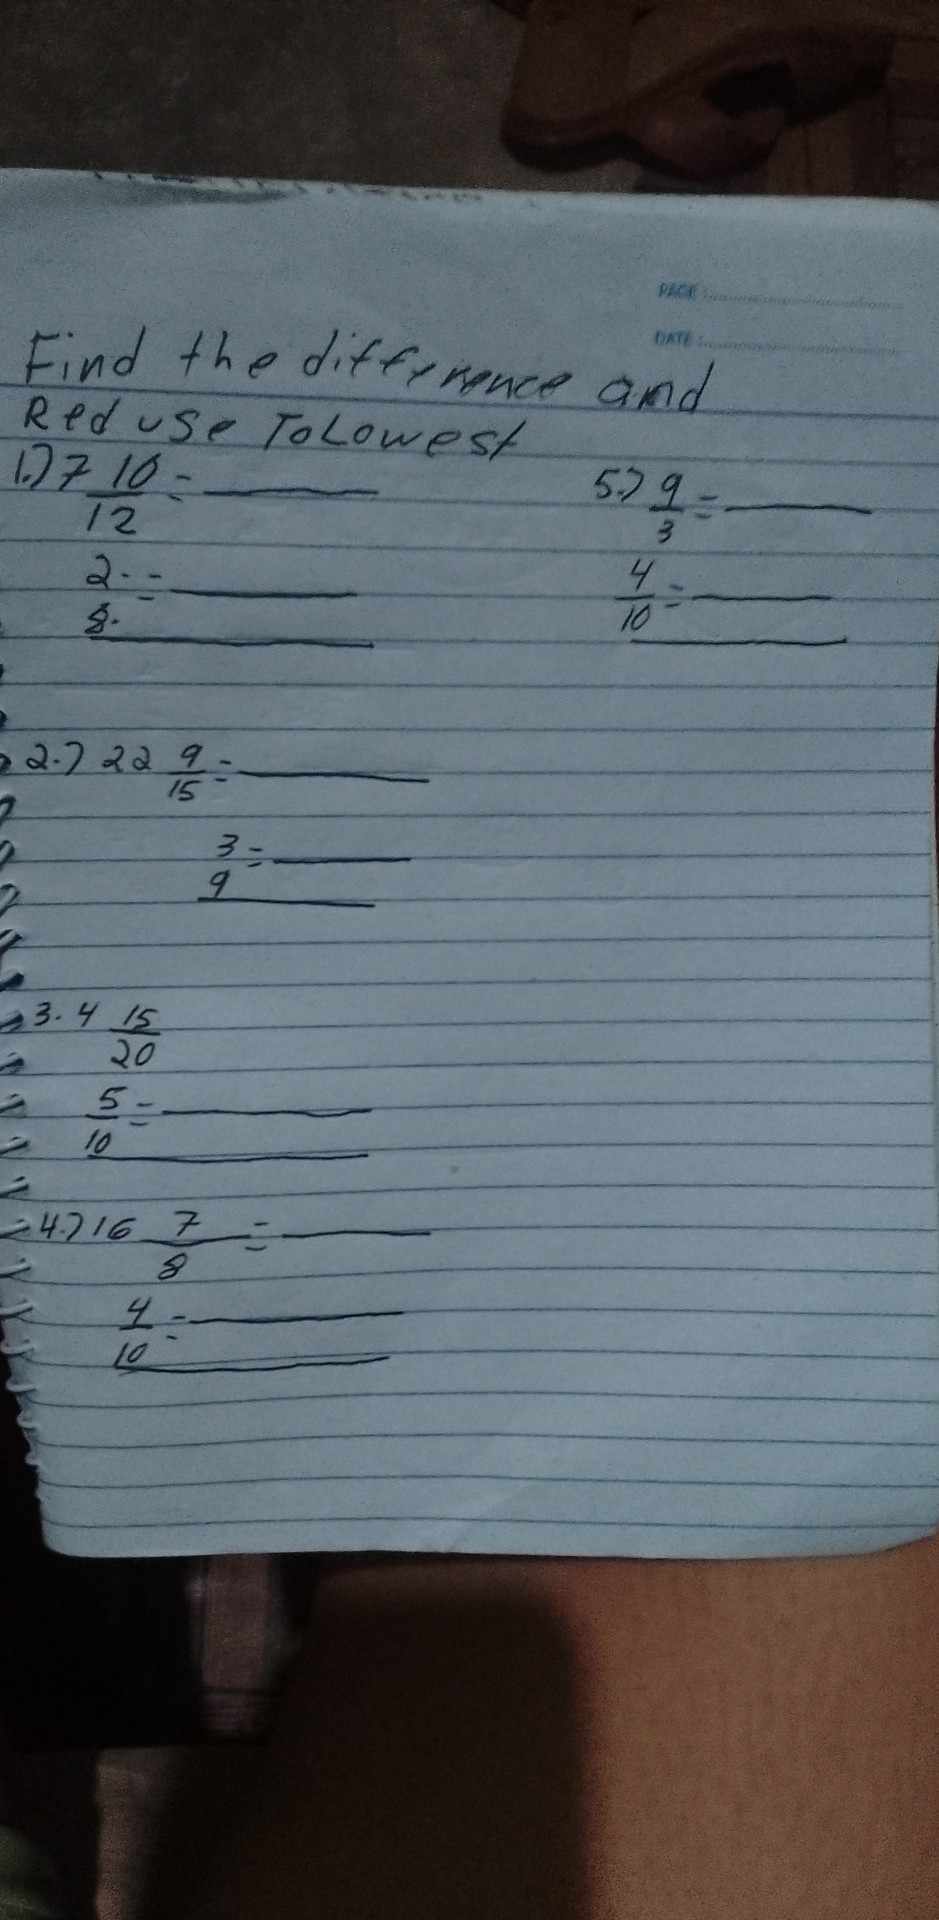 PAGE :
DATE :
Find the difference and
Reduse ToLowest
1.) 7 10/12 = ______
2/8 = ______
2.) 22 9/15 = ______
3/9 = ______
3. 4 15/20
5/10 = ______
4.) 16 7/8 = ______
4/10 = ______
5.) 9/3 = ______
4/10 = ______